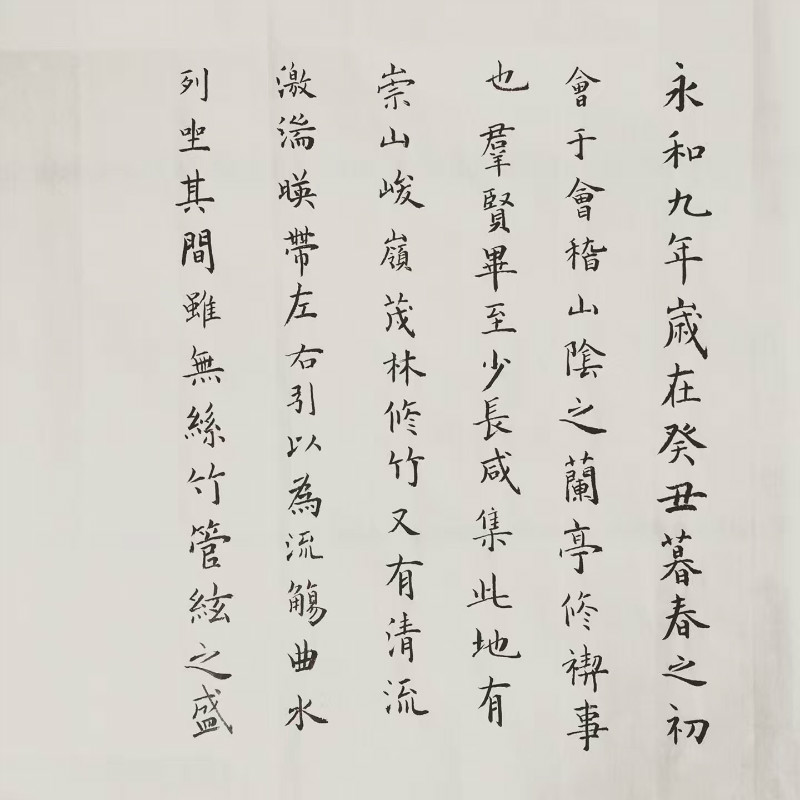 永和九年歲在癸丑暮春之初
會于會稽山陰之蘭亭修禊事
也羣賢畢至少長咸集此地有
崇山峻嶺茂林修竹又有清流
激湍暎帶左右引以為流觴曲水
列坐其間雖無絲竹管絃之盛